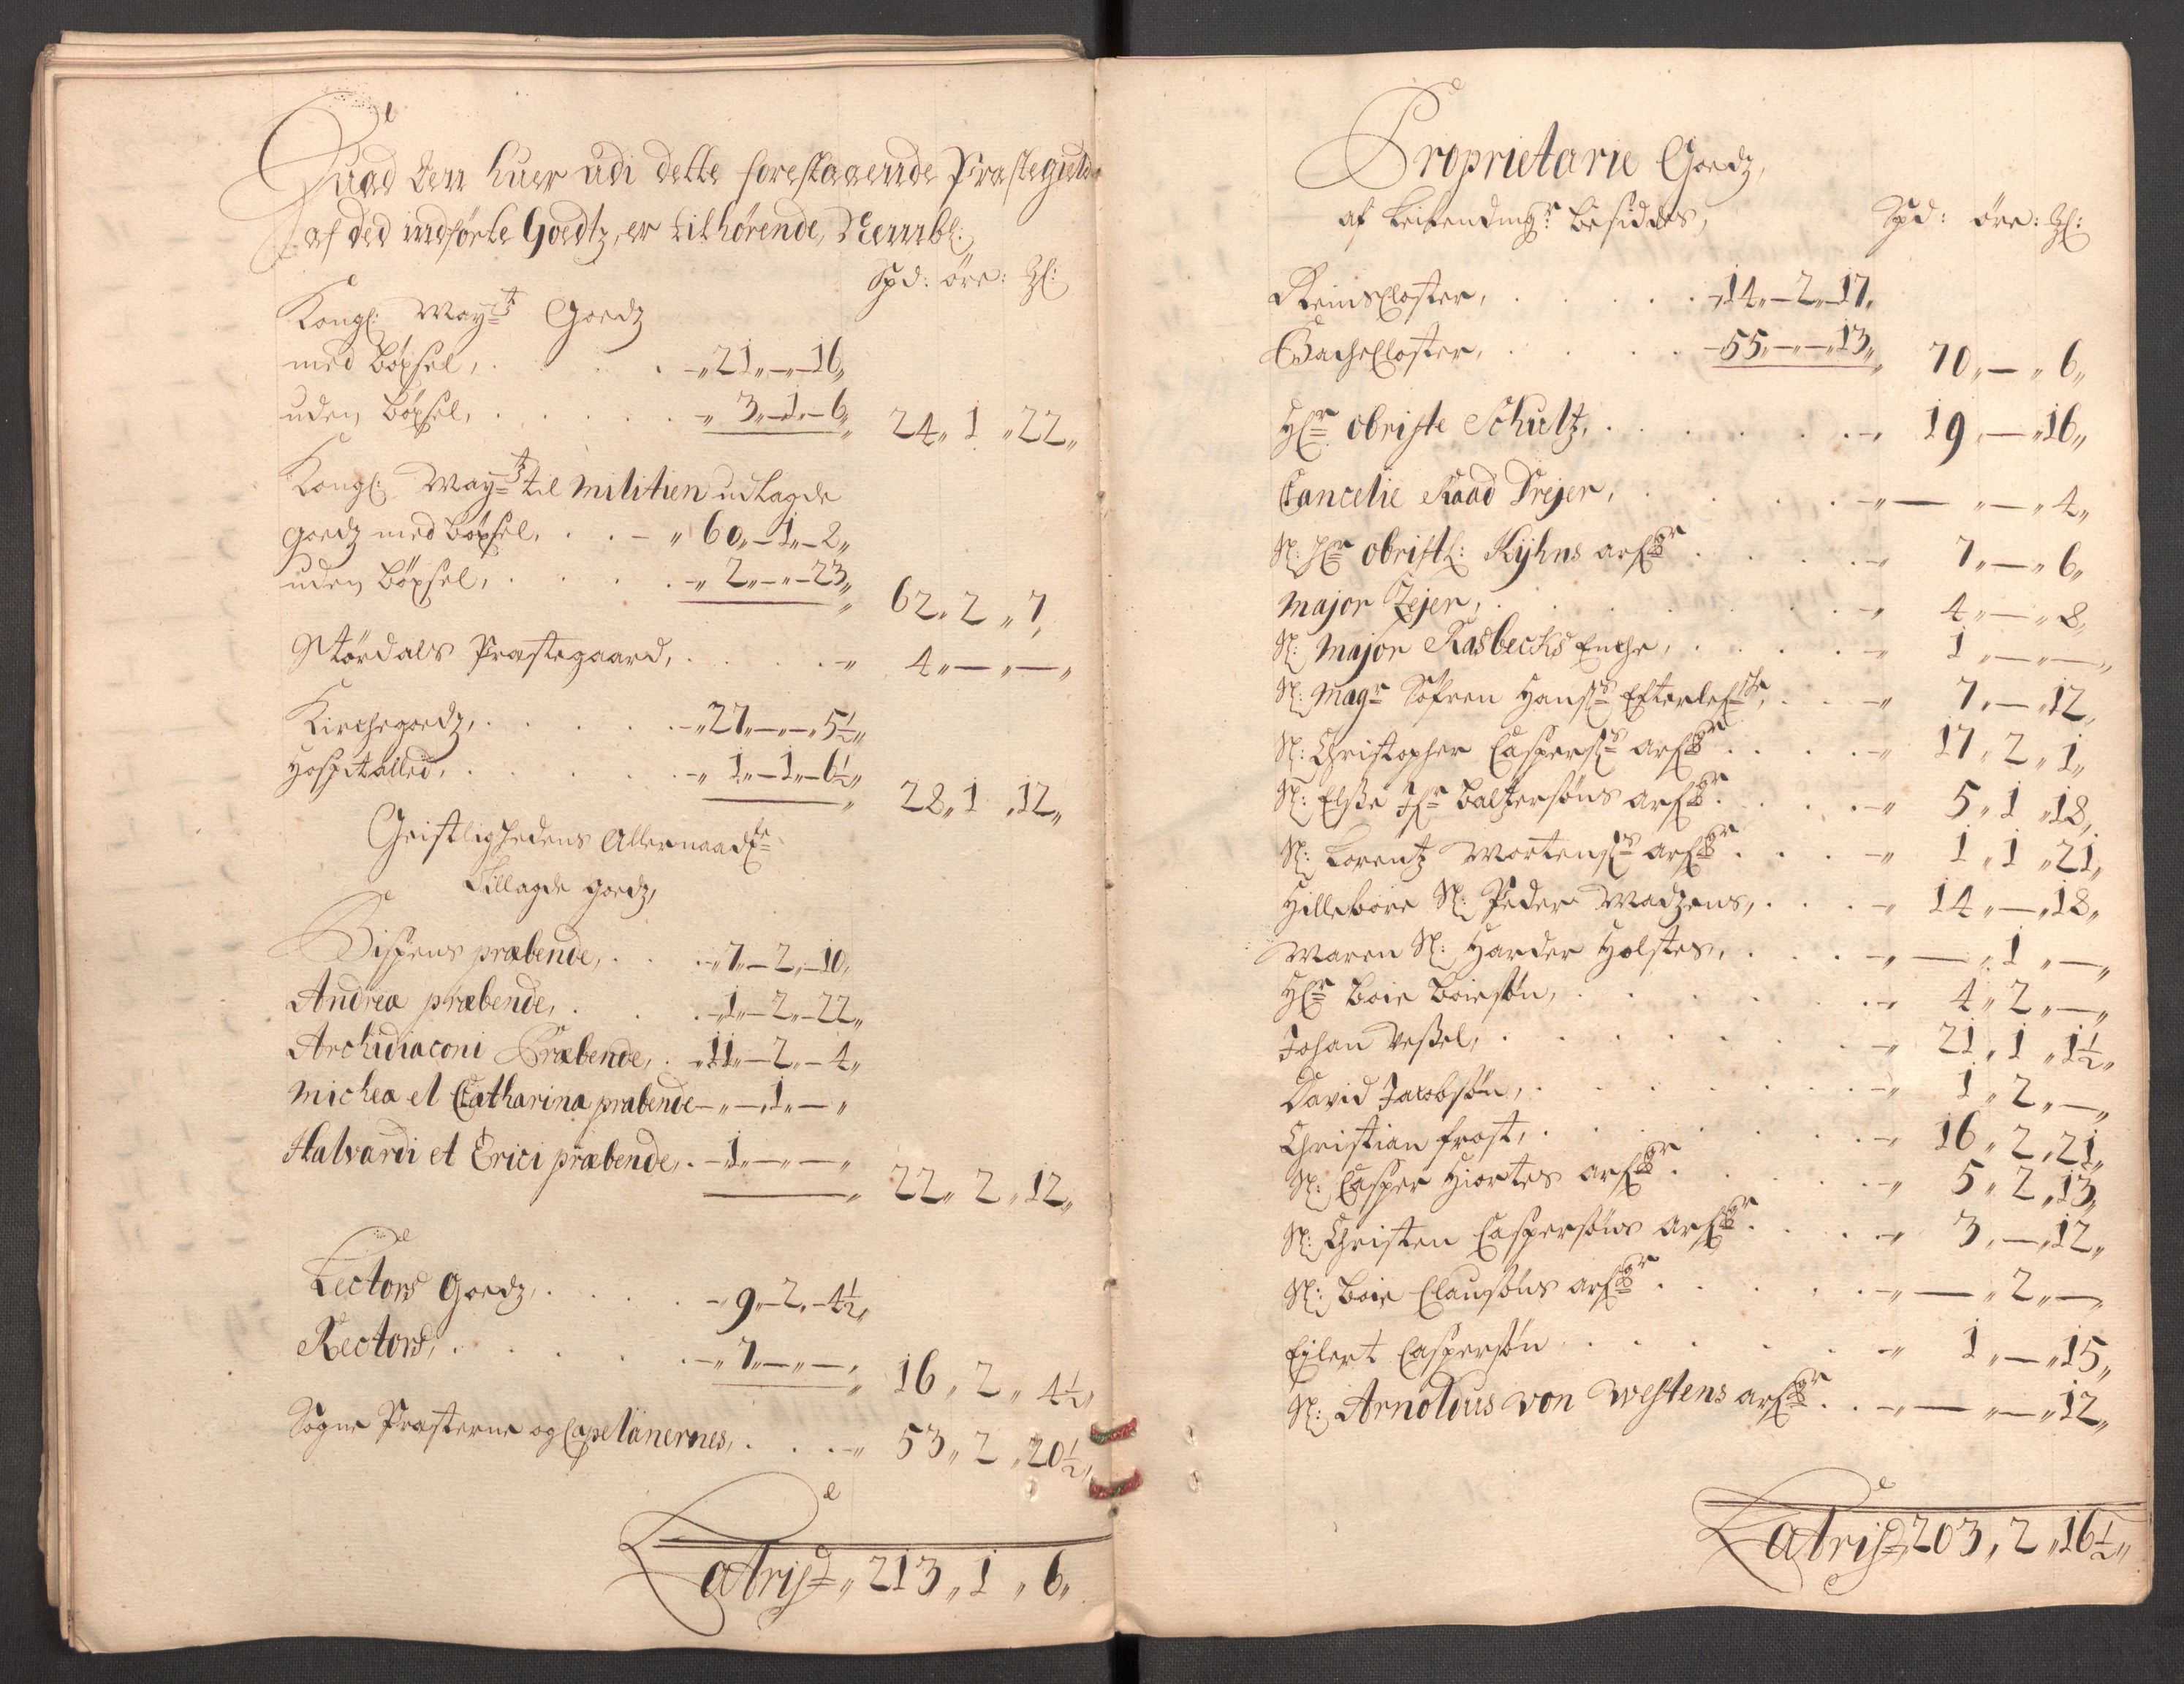 Huad den huer udi dette forestaaende Præstegield
af ded indførte Goedtz, er tilhørende, Nembl:
Spd: öre: Ɱ:
Kongl: May.tz Goedz
med böxsel, . . . . „ 21 „ — „ 16 „
uden böxsel, . . . . „ 3 „ 1 „ 6 „ 24 „ 1 „ 22 „
Kongl: May.tz til Militien udlagde
goedz med böxsel, . . „ 60 „ 1 „ 2 „
uden böxsel, . . . . „ 2 „ — „ 23 „ 62 „ 2 „ 7 „
Størdals Præstegaard, . . . . „ 4 „ — „ — „
Kirchegoedz, . . . . „ 27 „ — „ 5½ „
Hospitalled, . . . . „ 1 „ 1 „ 6½ „ 28 „ 1 „ 12 „
Geistlighedens Allernaadl:
Tillagde goedz,
Bispens præbende, . . „ 7 „ 2 „ 10 „
Andreæ præbende, . . „ 1 „ 2 „ 22 „
Archidiaconi Præbende, . „ 11 „ 2 „ 4 „
Michea et Catharina præbende „ — „ 1 „ — „
Halvardi et Erici præbende, . „ 1 „ — „ — „ 22 „ 2 „ 12 „
Lectors Goedz, . . . . „ 9 „ 2 „ 4½ „
Rectors, . . . . „ 7 „ — „ — „ 16 „ 2 „ 4½ „
Sogne Præsterne og Capelanernes, . . . „ 53 „ 2 „ 20½ „
Latris „ 213 „ 1 „ 6 „
Proprietarie Goedz,
af Leilendingr besiddes, Spd: öre: Ɱ:
Reinscloster, . . . . „ 14 „ 2 „ 17 „
Bachecloster, . . . . „ 55 „ — „ 13 „ 70 „ — „ 6 „
Hr obriste Schultz, . . . . „ 19 „ — „ 16 „
Cancelie Raad Drejer, . . . . „ — „ — „ 4 „
Sl: Hr obristl: Kyhns arf. . . . „ 7 „ — „ 6 „
Major Zejer, . . . . „ 4 „ — „ 8 „
Sl: Major Rasbecks Enche, . . . . „ 1 „ — „ — „
Sl: Magr Søfren Hans. Efterlef., . . „ 7 „ — „ 12 „
Sl: Christopher Caspers. arf. . . . „ 17 „ 2 „ 1 „
Sl: Elsse Baltzersöns arf. . . . „ 5 „ 1 „ 18 „
Sl: Lorentz Mortens. arf. . . . „ 1 „ 1 „ 21 „
Hilleborre Sl: Peder Madzens, . . . „ 14 „ — „ 18 „
Maren Sl: Harder Holstes, . . . „ — „ 1 „ — „
Hr Boie Boiesøn, . . . . „ 4 „ 2 „ — „
Johan Vessel, . . . . „ 21 „ 1 „ 1½ „
David Jacobsøn, . . . . „ 1 „ 2 „ — „
Christian frost, . . . . „ 16 „ 2 „ 21 „
Sl: Casper Hiortes arf. . . . „ 5 „ 2 „ 13 „
Sl: Christen Caspersøns arf. . . . „ 3 „ — „ 12 „
Sl: Boie Clausøns arf. . . . „ — „ 2 „ — „
Ejlert Caspersøn . . . . „ 1 „ — „ 15 „
Sl: Arnoldus von Westens arf. . . „ — „ — „ 12 „
Latris „ 203 „ 2 „ 16½ „